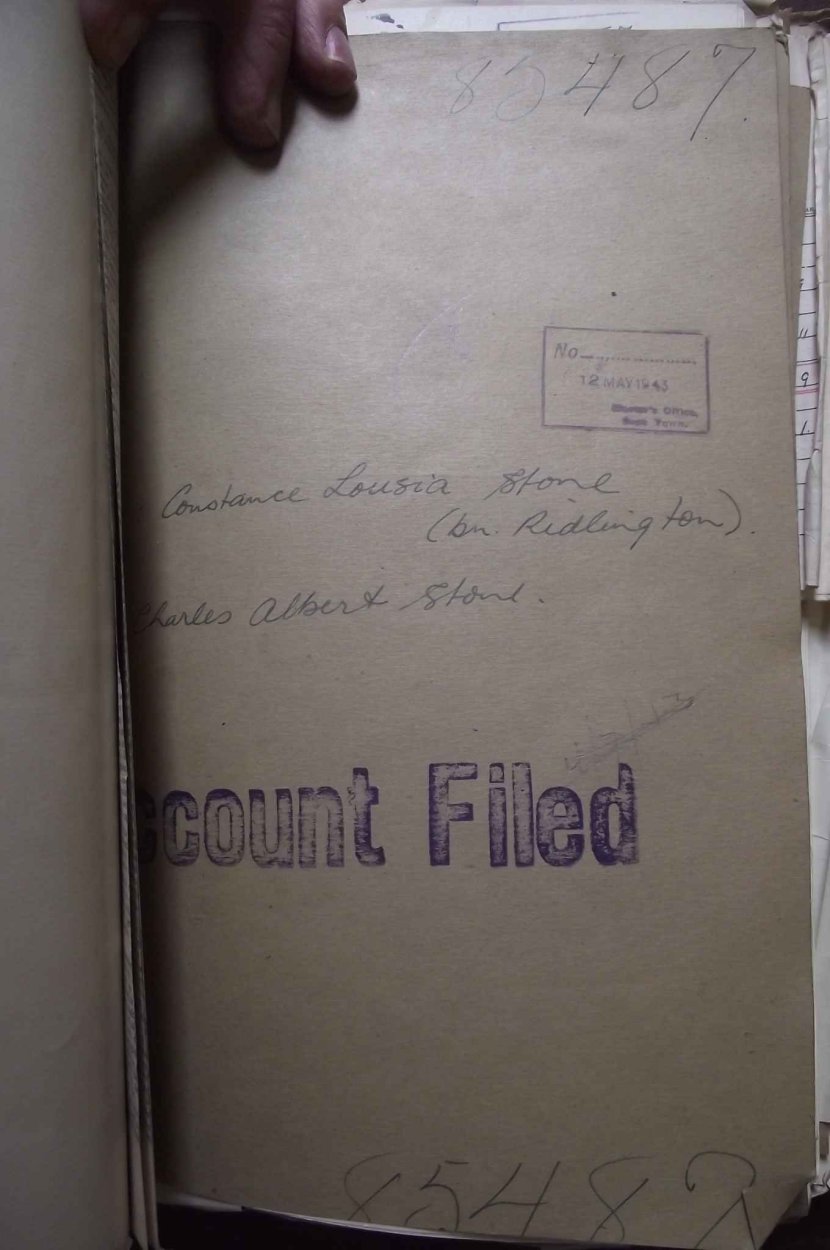 85487
No
12 MAY 1943
Master's Office,
Town.
Constance Lousia Stone
(bn. Ridlington).
Charles Albert Stone.
ccount Filed
85487